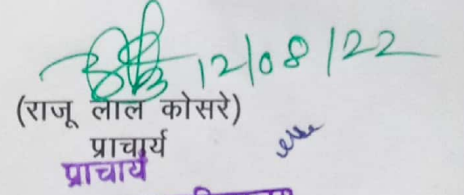 12/08/22
(राजू लाल कोसरे)
प्राचार्य
प्राचार्य